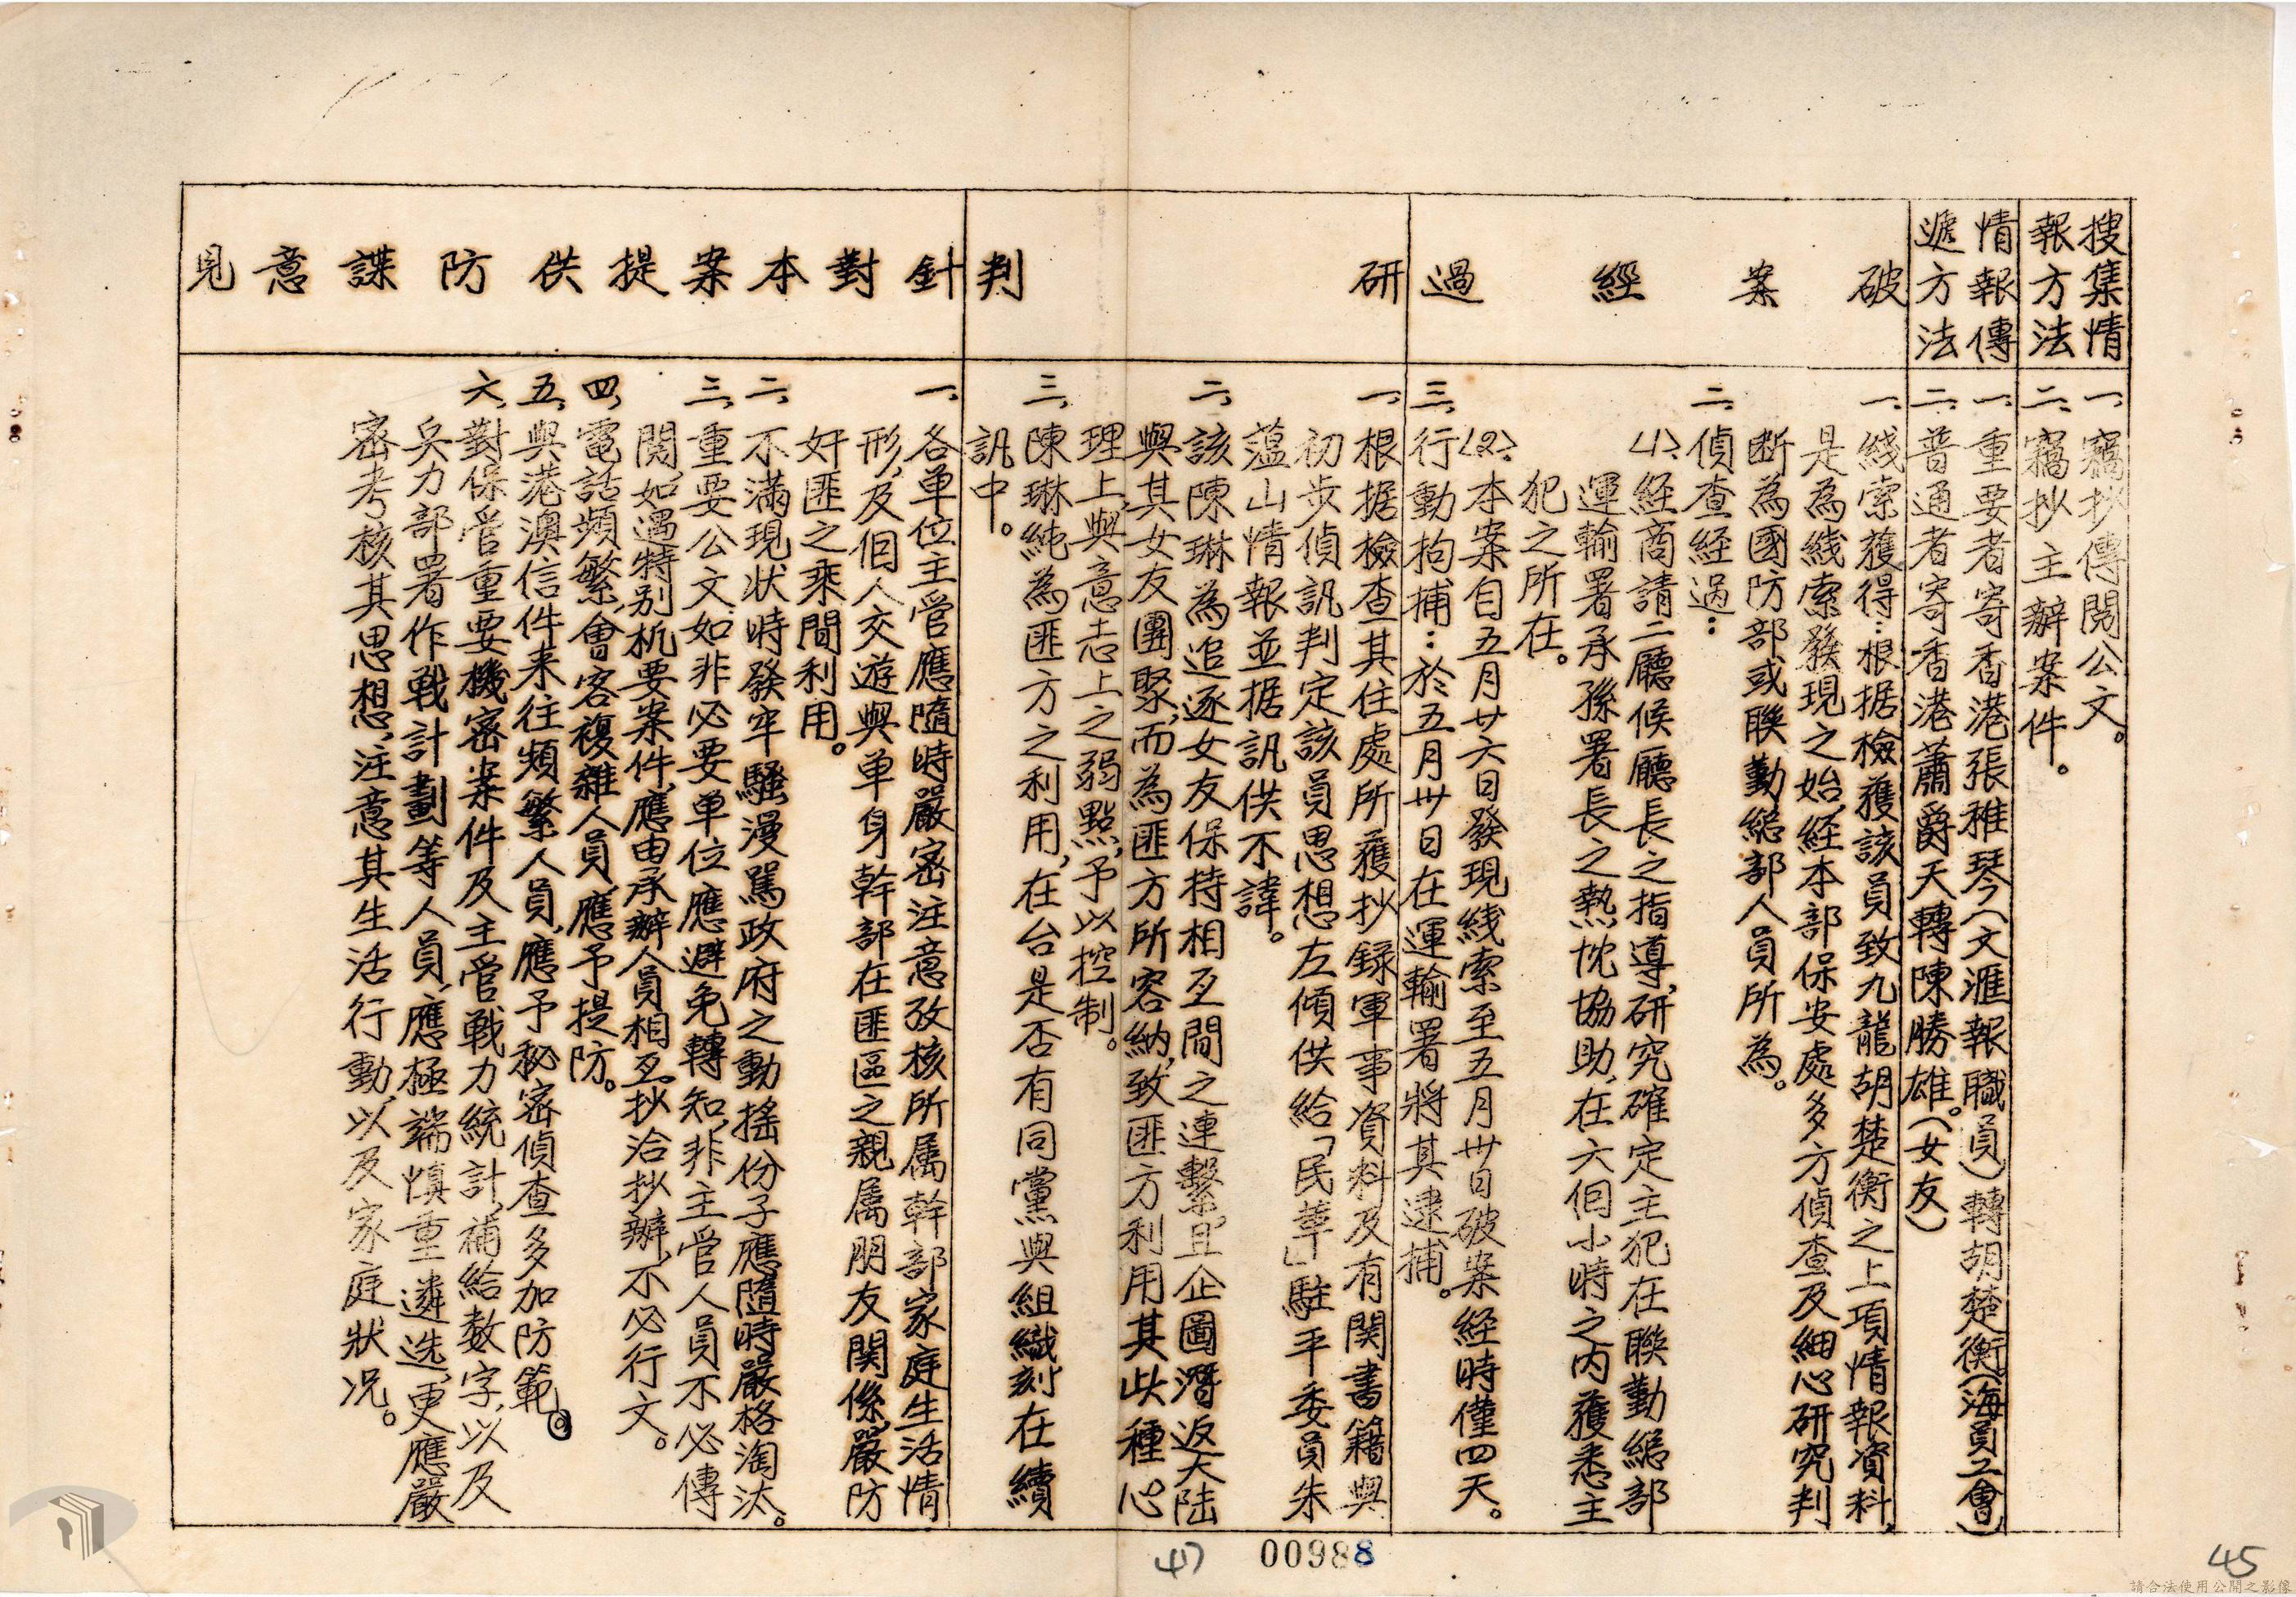 搜集情
報方法
一、竊抄傳閱公文。
二、竊抄主辦案件。
情報傳
遞方法
一、重要者寄香港張稚琴（文滙報職員）轉胡楚衡。（海員工會）
二、普通者寄香港蕭爵天轉陳勝雄。（女友）
破案經過
一、綫索獲得：根据檢獲該員致九龍胡楚衡之上項情報資料，
是為綫索發現之始，經本部保安處多方偵查及細心研究判
断為國防部或聯勤總部人員所為。
二、偵查經過：
⑴、經商請二廳候廳長之指導，研究確定主犯在聯勤總部
運輸署承孫署長之熱忱協助，在六個小時之内獲悉主
犯之所在。
⑵、本案自五月廿六日發現綫索至五月卅日破案經時僅四天。
三、行動拘捕：於五月卅日在運輸署將其逮捕。
研判
一、根据檢查其住處所獲抄錄軍事資料及有関書籍與
初步偵訊判定該員思想左傾供給「民革」駐平委員朱
蕴山情報並据訊供不諱。
二、該陳琳為追逐女友保持相互間之連繫，且企圖潛返大陆
與其女友團聚，而為匪方所容納，致匪方利用其此種心
理上，與意志上之弱點，予以控制。
三、陳琳純為匪方之利用，在台是否有同黨與組織刻在續
訊中。
針對本案提供防諜意見
一、各单位主管應隨時嚴密注意攷核所属幹部家庭生活情
形，及個人交遊與单身幹部在匪區之親属朋友関係，嚴防
奸匪之乘間利用。
二、不滿現状時發牢騷漫罵政府之動搖份子應隨時嚴格淘汰。
三、重要公文如非必要单位應避免轉知，非主管人員不必傳
閱，如遇特别机要案件，應由承辦人員相互抄洽抄辦，不必行文。
四、電話頻繁，會客複雜人員，應予提防。
五、與港澳信件来往頻繁人員，應予秘密偵查多加防範。
六、對保管重要機密案件及主管戰力統計，補給數字，以及
兵力部署作戰計劃等人員，應極端慎重遴选，更應嚴
密考核其思想，注意其生活行動，以及家庭狀况。
00988
45
請合法使用公開之影像